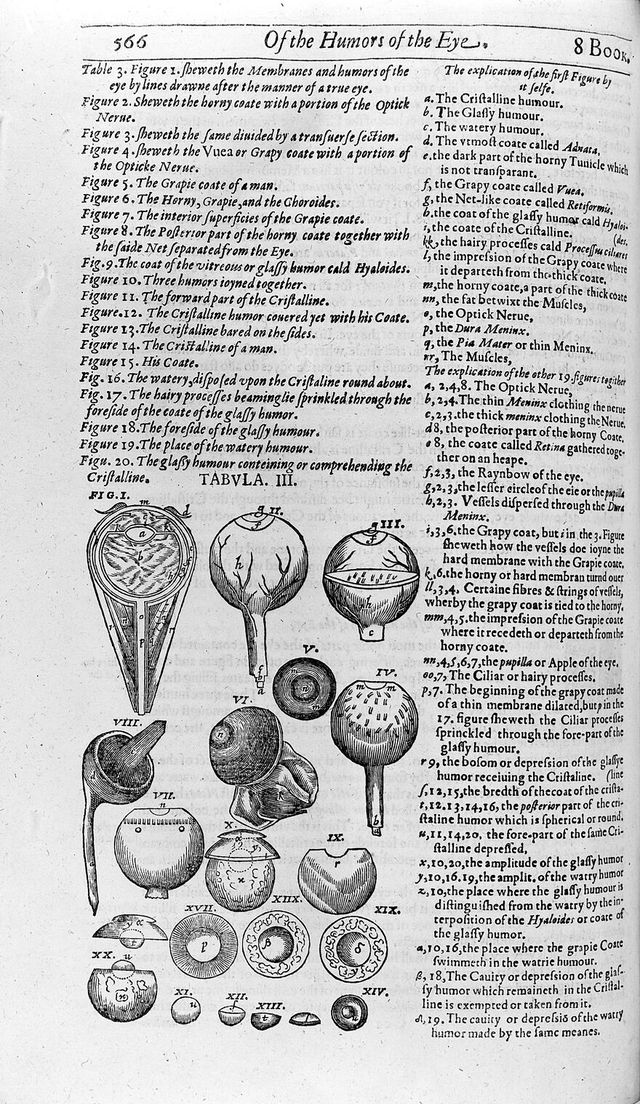 566 Of the Humors of the Eye. 8 Book.
Table 3. Figure 1. ſheweth the Membranes and humors of the
eye by lines drawne after the manner of a true eye.
Figure 2. Sheweth the horny coate with a portion of the Optick
Nerue.
Figure 3. ſheweth the ſame diuided by a tranſuerſe ſection.
Figure 4. ſheweth the Vuea or Grapy coate with a portion of
the Opticke Nerue.
Figure 5. The Grapie coate of a man.
Figure 6. The Horny, Grapie, and the Choroides.
Figure 7. The interior ſuperficies of the Grapie coate.
Figure 8. The Poſteror part of the horny coate together with
the ſaide Net ſeparated from the Eye.
Fig. 9. The coat of the vitreous or glaſſy humor cald Hyaloides.
Figure 10. Three humors ioyned together.
Figure 11. The forward part of the Criſtalline.
Figure. 12. The Criſtalline humor couered yet with his Coate.
Figure 13. The Criſtalline bared on the ſides.
Figure 14. The Criſtalline of a man.
Figure 15. His Coate.
Fig. 16. The watery, diſpoſed vpon the Criſtaline round about.
Fig. 17. The hairy proceſſes beaminglie ſprinkled through the
foreſide of the coate of the glaſſy humor.
Figure 18. The foreſide of the glaſſy humour.
Figure 19. The place of the watery humour.
Figu. 20. The glaſſy humour conteining or comprehending the
Criſtalline. TABVLA. III.
FIG. I.
II.
III.
V.
IV.
VI.
VIII.
VII.
X.
IX.
XVII.
XIIX.
XIX.
XX.
XI.
XII.
XIII.
XIV.
The explication of the firſt Figure by
it ſelfe.
a. The Criſtalline humour.
b. The Glaſſy humour.
c. The watery humour.
d. The vtmoſt coate called Adnata.
e. the dark part of the horny Tunicle which
is not tranſparant.
f, the Grapy coate called Vuea.
g, the Net-like coate called Retiformis.
h. the coat of the glaſſy humor cald Hyaloi-
i, the coate of the Criſtalline. (des.
kk, the hairy proceſſes cald Proceſſus ciliares
l, the impreſſion of the Grapy coate where
it departeth from the thicke coate.
m, the horny coate, a part of the thick coate
nn, the fat betwixt the Muſcles,
o, the Optick Nerue,
p, the Dura Meninx.
q, the Pia Mater or thin Meninx.
rr, The Muſcles,
The explication of the other 19. figures together
a, 2,4,8. The Optick Nerue,
b, 2,4. The thin Meninx clothing the nerue
c, 2,3. the thick meninx clothing the Nerue,
d 8, the poſterior part of the horny Coate,
e 8, the coate called Retina gathered toge-
ther on an heape.
f, 2,3, the Raynbow of the eye.
g, 2,3, the leſſer circle of the eie or the pupilla
h, 2,3. Veſſels diſperſed through the Dura
Meninx.
i, 3,6. the Grapy coat, but i in the 3. Figure
ſheweth how the veſſels doe ioyne the
hard membrane with the Grapie coate.
k, 6. the horny or hard membran turnd ouer
ll, 3,4. Certaine fibres & ſtrings of veſſels,
wherby the grapy coat is tied to the horny.
mm, 4,5. the impreſſion of the Grapie coate
where it recedeth or departeth from the
horny coate.
nn, 4,5,6,7, the pupilla or Apple of the eye.
oo, 7, The Ciliar or hairy proceſſes.
p, 7. The beginning of the grapy coat made
of a thin membrane dilated, but p in the
17. figure ſheweth the Ciliar proceſſes
ſprinckled through the fore-part of the
glaſſy humour.
r 9, the boſom or depreſſion of the glaſſye
humor receiuing the Criſtaline. (line
ſ, 12, 15, the bredth of the coat of the criſta-
t, 12. 13, 14, 16, the poſterior part of the cri-
ſtaline humor which is ſpherical or round.
u, 11, 14, 20. the fore-part of the ſame Cri-
ſtalline depreſſed,
x, 10, 20, the amplitude of the glaſſy humor
y, 10, 16. 19, the amplit. of the watry humor
z, 10, the place where the glaſſy humour is
diſtinguiſhed from the watry by the in-
terpoſition of the Hyaloides or coate of
the glaſſy humor.
α, 10, 16, the place where the grapie Coate
ſwimmeth in the watrie humour.
β, 18, The Cauity or depreſſion of the glaſ-
ſy humor which remaineth in the Criſtal-
line is exempted or taken from it.
δ, 19. The cauity or depreſſiō of the watry
humor made by the ſame meanes.